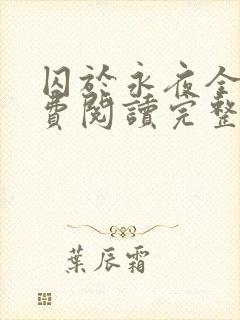 囚於永夜全
費閱讀完整
葉辰霜